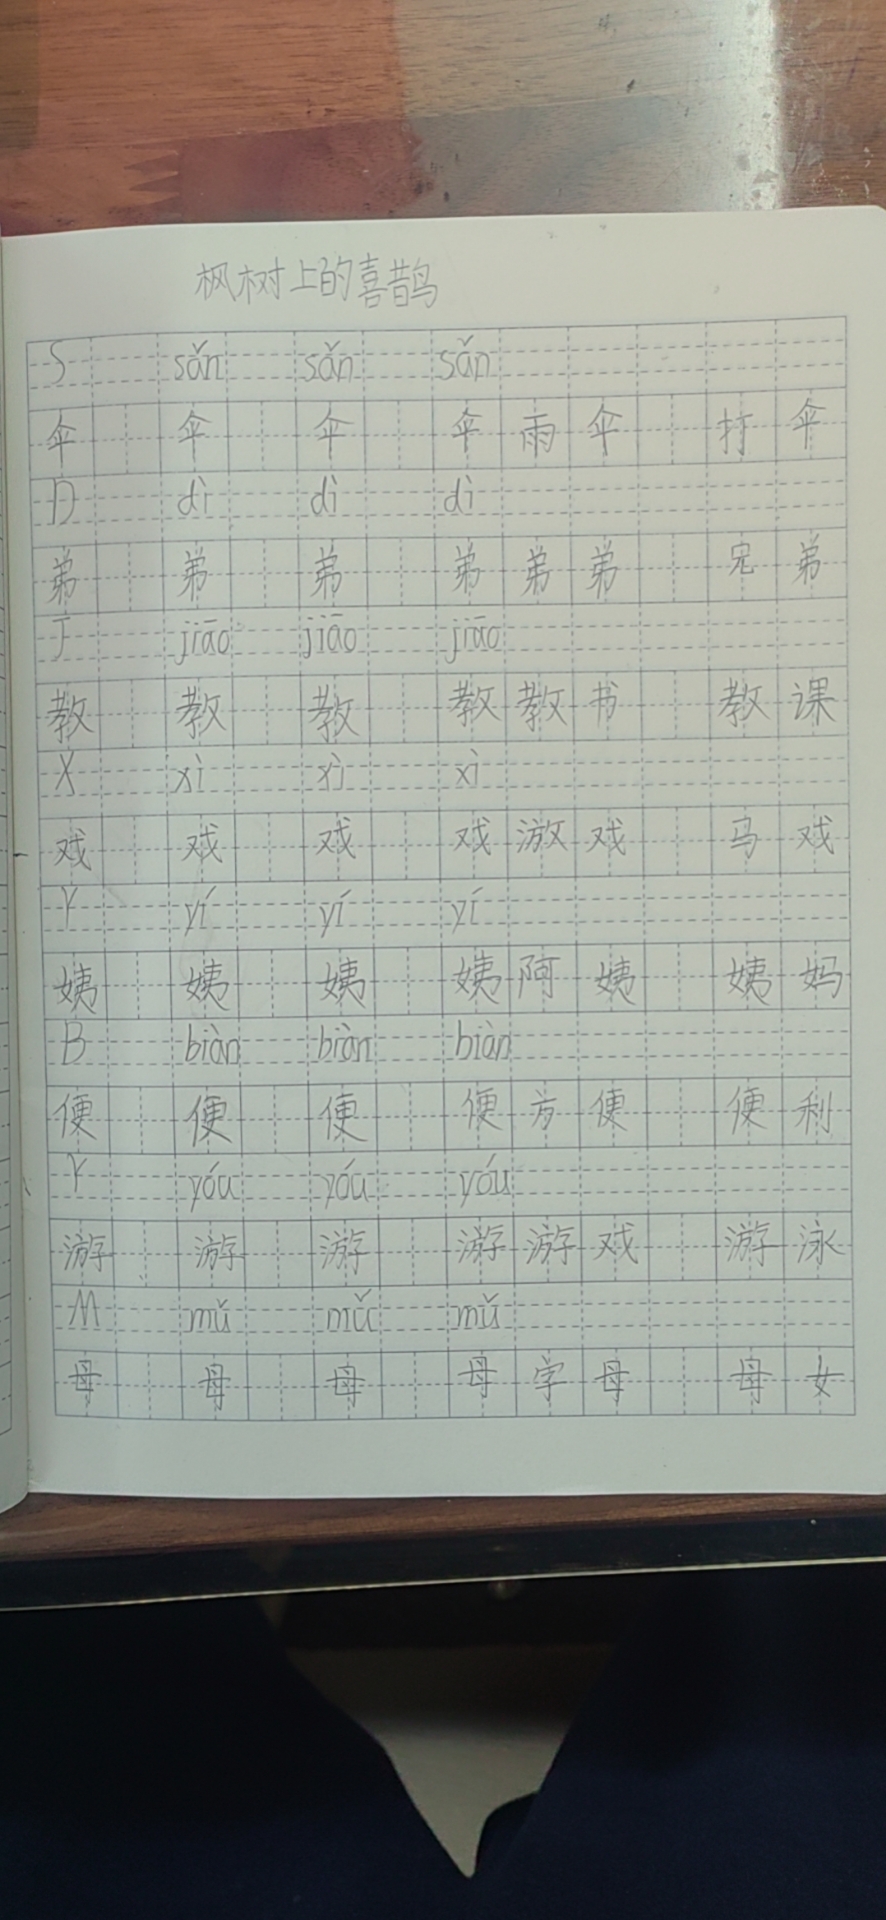 枫树上的喜鹊
S sǎn sǎn sǎn
伞 伞 伞 伞 雨伞 打伞
D dì dì dì
弟 弟 弟 弟 弟弟 兄弟
J jiāo jiāo jiāo
教 教 教 教 教书 教课
X xì xì xì
戏 戏 戏 戏 游戏 马戏
Y yí yí yí
姨 姨 姨 姨 阿姨 姨妈
B biàn biàn biàn
便 便 便 便 方便 便利
Y yóu yóu yóu
游 游 游 游 游戏 游泳
M mǔ mǔ mǔ
母 母 母 母 字母 母女